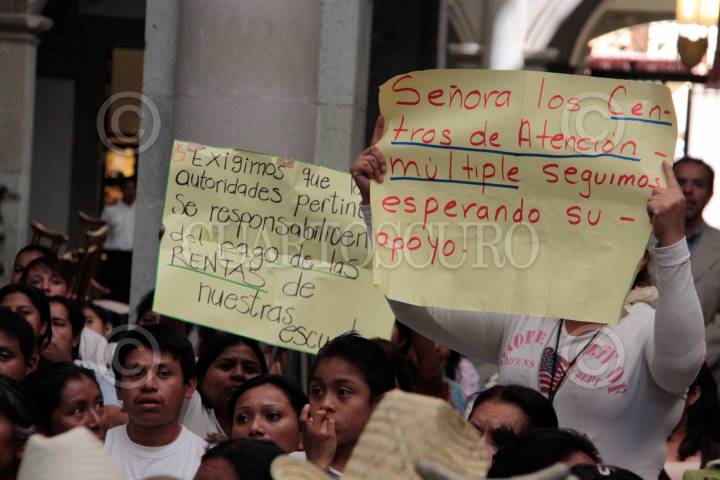 Exigimos que l
autoridades pertine
se responsabilicen
del pago de las
RENTAS de
nuestras
escu
Señora los Cen-
tros de Atención
múltiple seguimos
esperando su
apoyo.
CUARTOSCURO
CITIZENS
DEPT